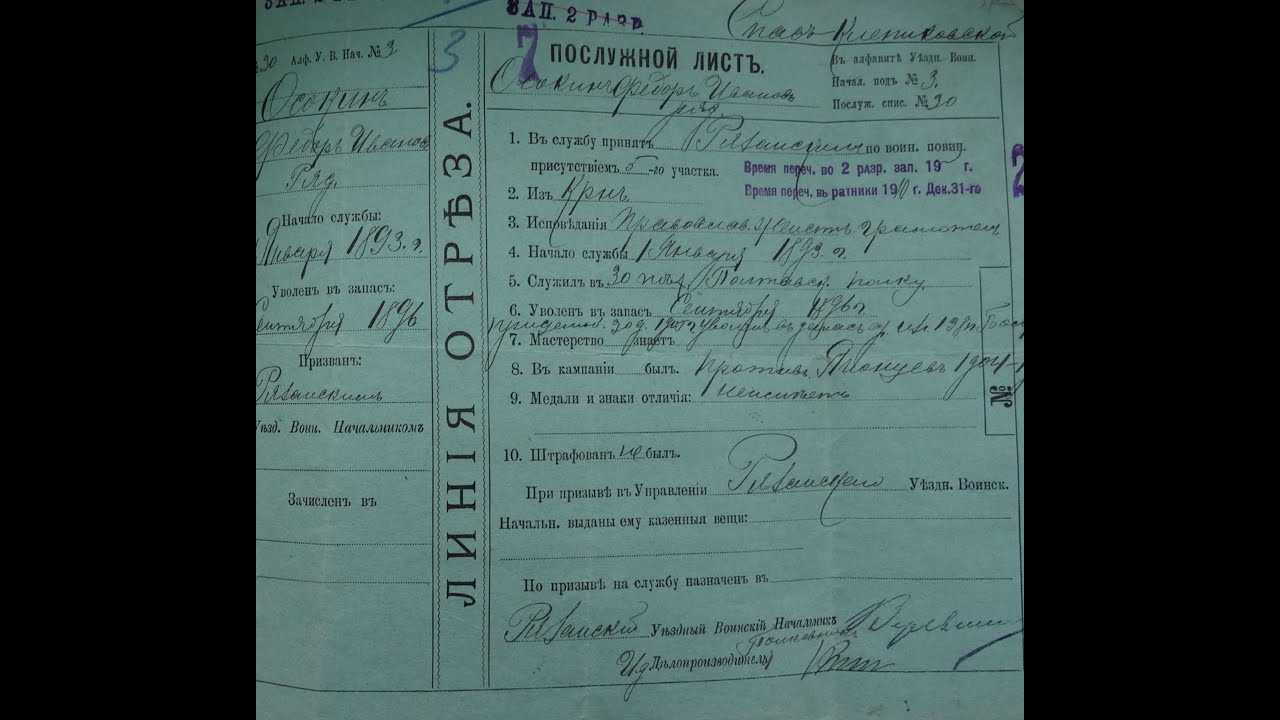 ЗАП. 2 РАЗР.
Спасъ-Клепиковской
Алф. У. В. Нач. № 3
30
Осокинъ
Федоръ Ивановъ
Ряд.
Начало службы:
1 Января 1893 г.
Уволенъ въ запасъ:
Сентября 1896
Призванъ:
Рязанскимъ
Уѣзд. Воин. Начальникомъ
Зачисленъ въ
3
ЛИНІЯ ОТРѢЗА.
7
ПОСЛУЖНОЙ ЛИСТЪ.
Осокинъ Федоръ Ивановъ
ряд.
Въ алфавитѣ Уѣздн. Воин.
Начал. подъ № 3.
Послуж. спис. № 30
1. Въ службу принятъ Рязанскимъ по воин. повин.
присутствіемъ 5-го участка.
Время переч. во 2 разр. зап. 190 г.
Время переч. въ ратники 1910 г. Дек. 31-го
2. Изъ Крнъ
3. Исповѣданія Православ. Холостъ грамотенъ
4. Начало службы 1 Января 1893 г.
5. Служилъ въ 30 пѣх. Полтавск. полку
6. Уволенъ въ запасъ Сентября 1896 г.
7. Мастерство знаетъ
8. Въ кампаніи былъ. противъ Японцевъ 1904
9. Медали и знаки отличія: неимѣетъ
№
10. Штрафованъ не былъ.
При призывѣ въ Управленіи Рязанскаго Уѣздн. Воинск.
Начальн. выданы ему казенныя вещи:
По призывѣ на службу назначенъ въ
Рязанскій Уѣздный Воинскій Начальникъ
Полковникъ
Ид Дѣлопроизводитель